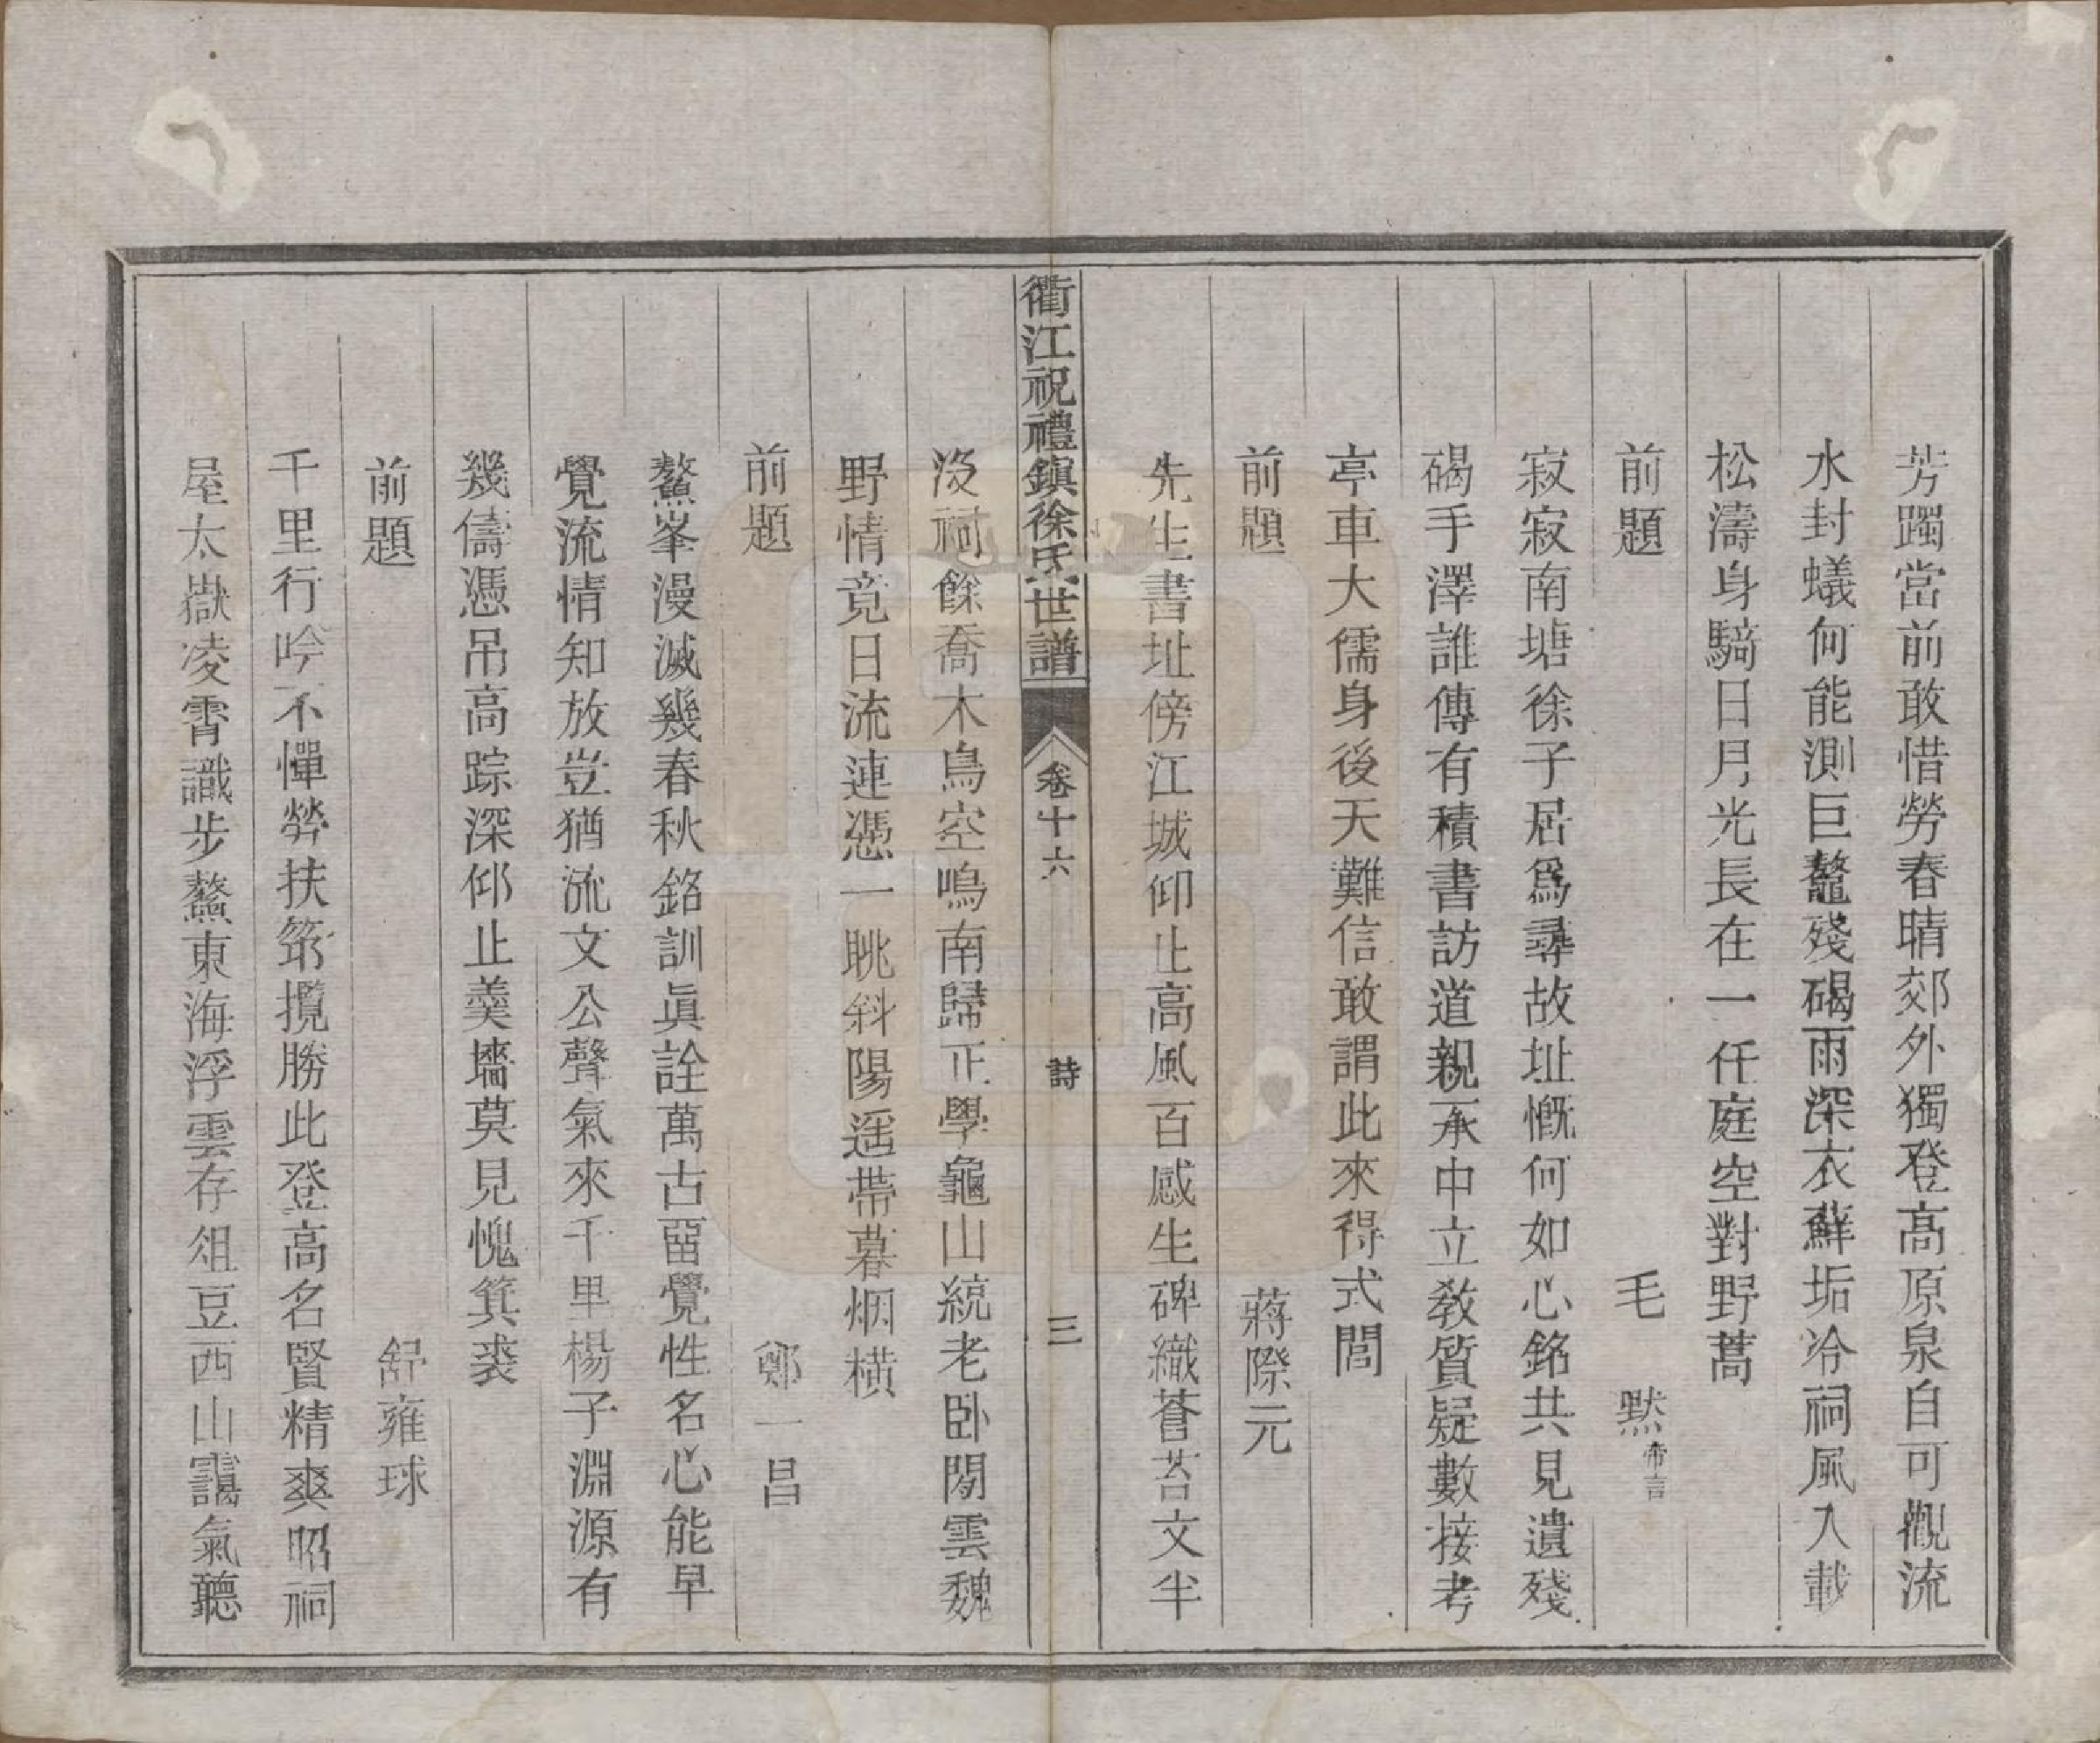 芳躅當前敢惜勞春晴郊外獨登高原泉自可觀流
水封蟻何能測巨鼇殘碣雨深衣蘚垢冷祠風入載
松濤身騎日月光長在一任庭空對野蒿
前題　毛　默帝言
寂寂南塘徐子居爲尋故址慨何如心銘共見遺殘
碣手澤誰傳有積書訪道親承中立敎質疑數接考
亭車大儒身後天難信敢謂此來得式閭
前題　蔣際元
先生書址傍江城仰止高風百感生碑織蒼苔文半
衢江祝禮鎭徐氏世譜　卷十六　詩　三
沒祠餘喬木鳥空鳴南歸正學龜山統老臥閒雲魏
野情竟日流連憑一眺斜陽遥帶暮烟橫
前題　鄭一昌
鰲峯漫滅幾春秋銘訓眞詮萬古畱覺性名心能早
覺流情知放豈猶流文公聲氣來千里楊子淵源有
幾儔憑吊高踪深仰止羹墻莫見愧箕裘
前題　舒雍球
千里行吟不憚勞扶筇攬勝此登高名賢精爽昭祠
屋太嶽凌霄識步鰲東海浮雲存俎豆西山靄氣聽